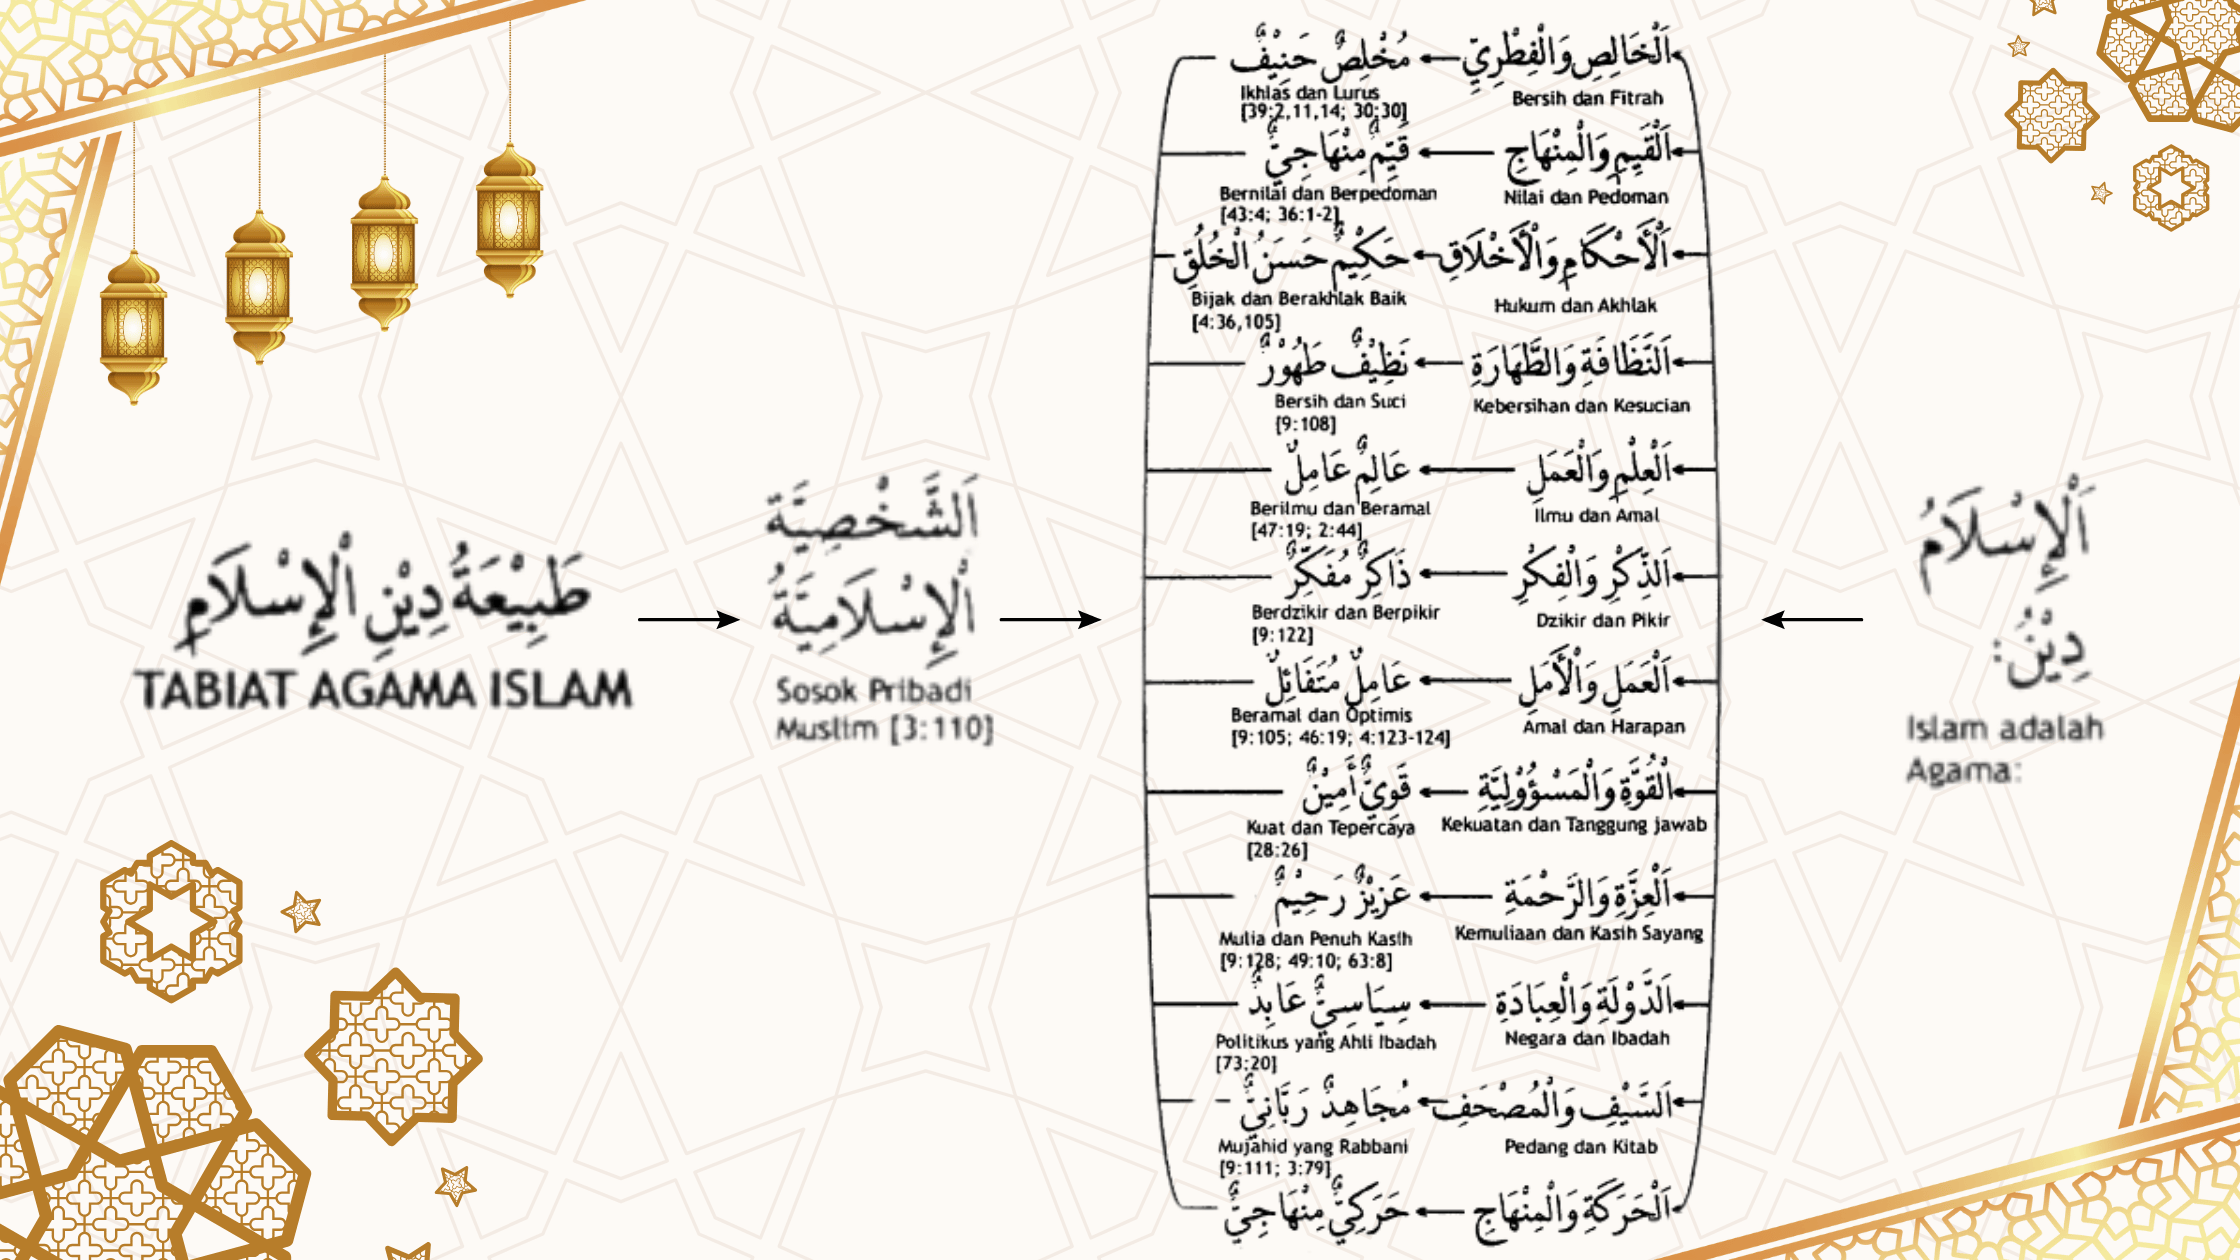 طَبِيْعَةُ دِيْنِ اْلإِسْلاَمِ
TABIAT AGAMA ISLAM
اَلشَّخْصِيَّة
اْلإِسْلاَمِيَّةُ
Sosok Pribadi
Muslim [3:110]
اَلْإِسْلاَمُ
دِيْنٌ:
Islam adalah
Agama:
اَلْخَالِصِ وَالْفِطْرِيّ
Bersih dan Fitrah
مُخْلِصٌ حَنِيْفٌ
Ikhlas dan Lurus
[39:2,11,14; 30:30]
اَلْقَيِّمِ وَالْمِنْهَاجِ
Nilai dan Pedoman
قَيِّمٌ مِنْهَاجِيٌّ
Bernilai dan Berpedoman
[43:4; 36:1-2]
اَلْأَحْكَامِ وَالْأَخْلَاقِ
Hukum dan Akhlak
حَكِيْمٌ حَسَنُ الْخُلُقِ
Bijak dan Berakhlak Baik
[4:36,105]
اَلنَّظَافَةِ وَالطَّهَارَةِ
Kebersihan dan Kesucian
نَظِيْفٌ طَهُوْرٌ
Bersih dan Suci
[9:108]
اَلْعِلْمِ وَالْعَمَلِ
Ilmu dan Amal
عَالِمٌ عَامِلٌ
Berilmu dan Beramal
[47:19; 2:44]
اَلذِّكْرِ وَالْفِكْرِ
Dzikir dan Pikir
ذَاكِرٌ مُفَكِّرٌ
Berdzikir dan Berpikir
[9:122]
اَلْعَمَلِ وَالْأَمَلِ
Amal dan Harapan
عَامِلٌ مُتَفَائِلٌ
Beramal dan Optimis
[9:105; 46:19; 4:123-124]
اَلْقُوَّةِ وَالْمَسْؤُوْلِيَّةِ
Kekuatan dan Tanggung jawab
قَوِيٌّ أَمِيْنٌ
Kuat dan Tepercaya
[28:26]
اَلْعِزَّةِ وَالرَّحْمَةِ
Kemuliaan dan Kasih Sayang
عَزِيْزٌ رَحِيْمٌ
Mulia dan Penuh Kasih
[9:128; 49:10; 63:8]
اَلدَّوْلَةِ وَالْعِبَادَةِ
Negara dan Ibadah
سِيَاسِيٌّ عَابِدٌ
Politikus yang Ahli Ibadah
[73:20]
اَلسَّيْفِ وَالْمُصْحَفِ
Pedang dan Kitab
مُجَاهِدٌ رَبَّانِيٌّ
Mujahid yang Rabbani
[9:111; 3:79]
اَلْحَرَكَةِ وَالْمِنْهَاجِ
حَرَكِيٌّ مِنْهَاجِيٌّ